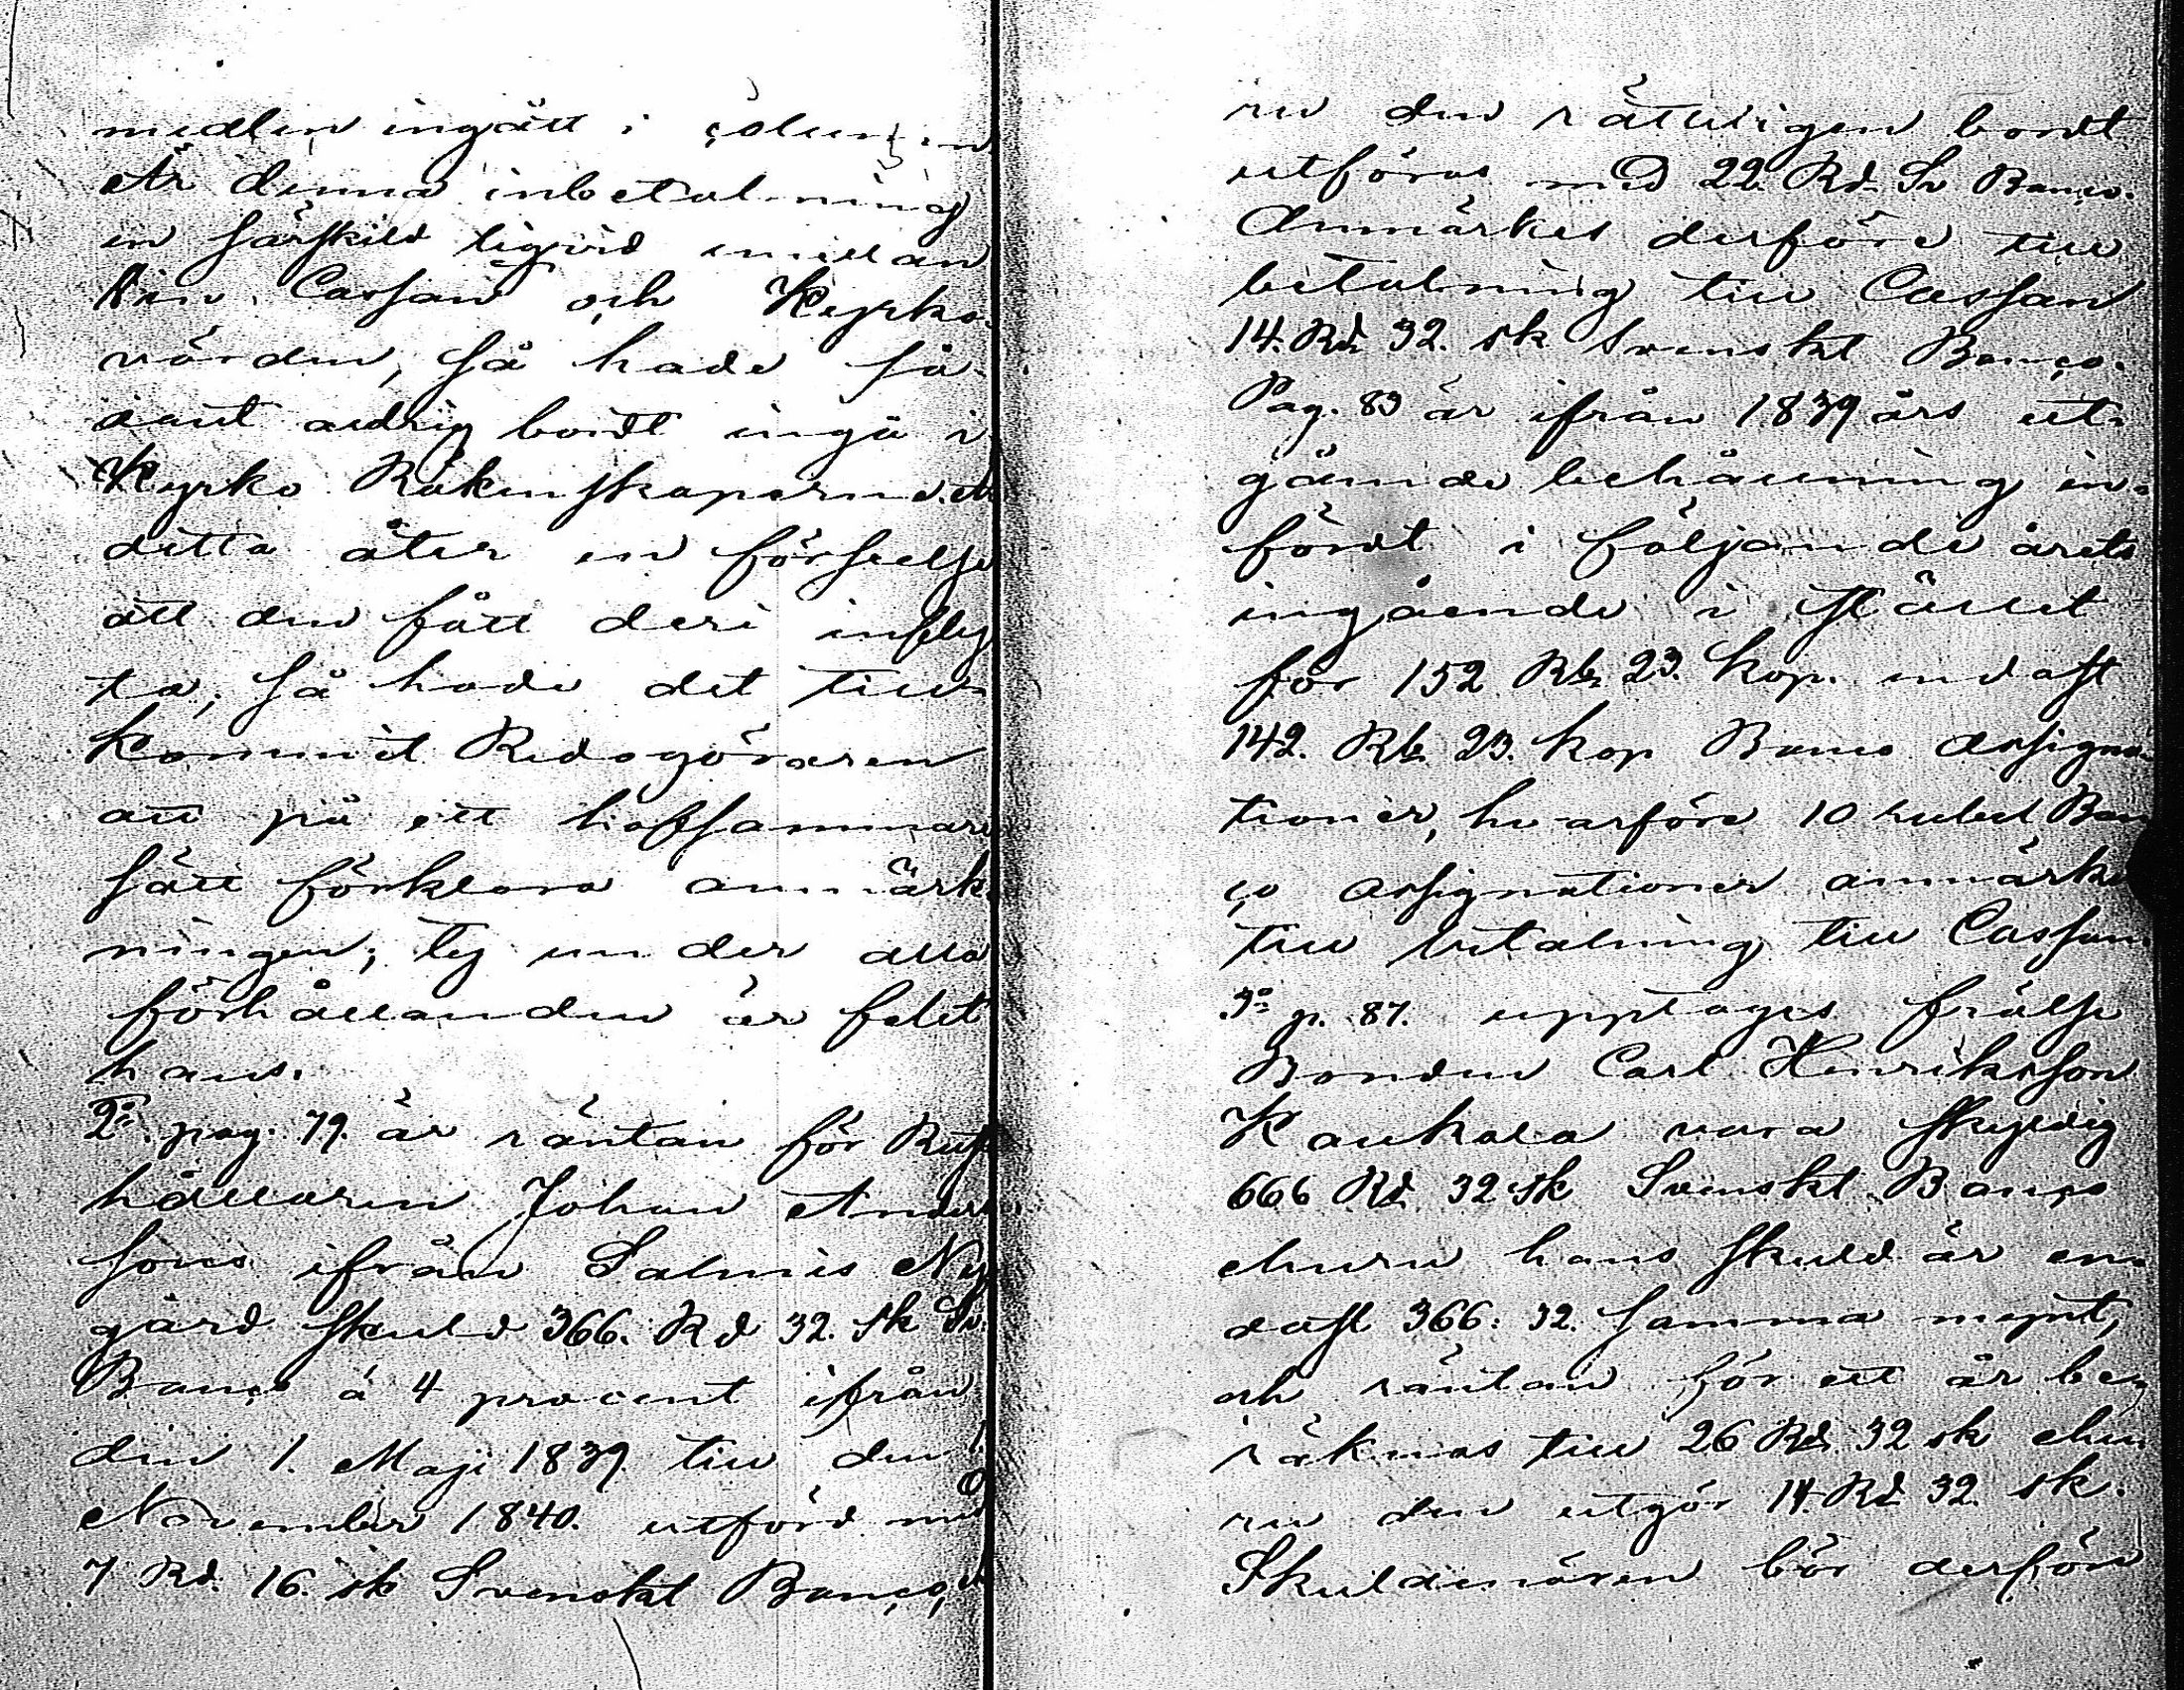 medlen ingått i
Är denna inbetalning
en särskild liqvid emillan
Cassan och Kyrko-
värden, så hade så-
dant aldrig bordt ingå i
Kyrko Räkenskaperne. Är
detta åter en förseelse
att den fått deri infly
ta, så hade det till-
kommit Redogöraren
att på ett höfsammare
sätt förklara anmärk-
ningen; ty under alla
förhållanden är felet
hans.
2:o pag. 79. är räntan för Rust
hållaren Johan Anders
sons ifrån Salmis Ny
gård skuld 366. Rd 32. sk Sv.
Banco á 4 procent ifrån
den 1. Maji 1839 till den 1
November 1840. utförd med
7 Rd. 16. sk Svenskt Banco, eh
ru den rätteligen bordt
utföras med 22. Rd. Sv Banco.
Anmärkes derföre till
betalning till Cassan
14. Rd. 32. sk Svenskt Banco.
Pag. 83 är ifrån 1839 års ut-
gående behållning in-
fördt i följande årets
ingående i stället
för 152 Rb. 23. kop. endast
142. Rb. 23. kop Banco Assigna-
tioner, hvarföre 10 rubel Ban
co assignationer anmärkes
till betalning till Cassan.
3:o p. 87. upptages frälse
Bonden Carl Henriksson
Kaukola vara skyldig
666 Rd. 32 sk Svenskt Banco
ehuru hans skuld är en-
dast 366: 32. samma mynt,
och räntan för ett år be-
räknas till 26 Rd. 32 sk ehu
ru den utgör 14. Rd. 32. sk.
Skuldenären bör derföre